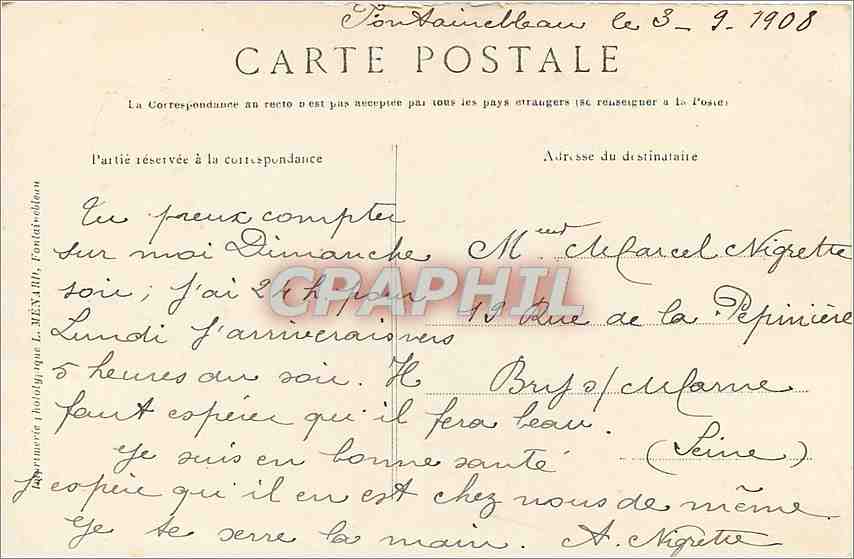 Fontainebleau le 3 - 9 - 1908
CARTE POSTALE
La Correspondance au recto n'est pas acceptée par tous les pays étrangers (se renseigner à la Poste)
Partie réservée à la correspondance
Adresse du destinataire
Tu peux compter
sur moi Dimanche
soir ; j'ai 24 h. pour
Lundi j'arriverais vers
5 heures du soir. Il
faut espérer qu'il fera beau.
Je suis en bonne santé
j'espère qu'il en est chez vous de même
Je te serre la main. A. Nigrette
Marcel Nigrette
19 Rue de la Pépinière
Bry s/ Marne
(Seine)
Imprimerie photolypique L. MÉNARD, Fontainebleau
CPAPHIL